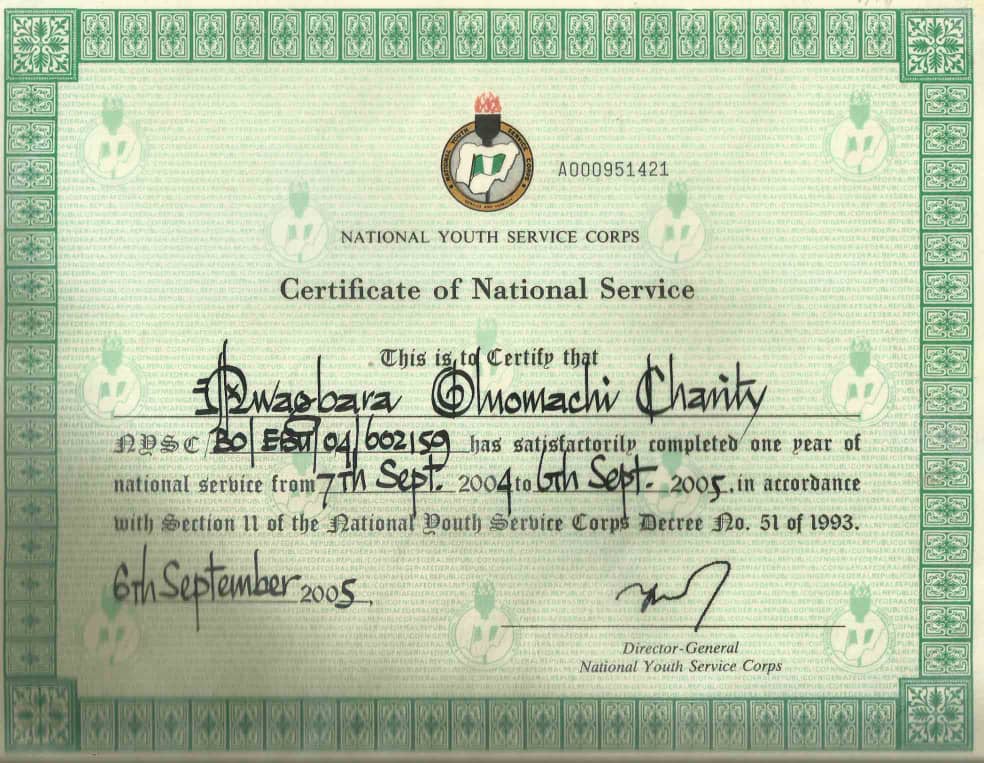 NATIONAL YOUTH SERVICE CORPS
A000951421
NATIONAL YOUTH SERVICE CORPS
Certificate of National Service
This is to Certify that
Nwagbara Oluomachi Charity
NYSC/BO/EBU/04/602159 has satisfactorily completed one year of
national service from 7th Sept. 2004 to 6th Sept. 2005. in accordance
with Section 11 of the National Youth Service Corps Decree No. 51 of 1993.
6th September 2005.
Director-General
National Youth Service Corps